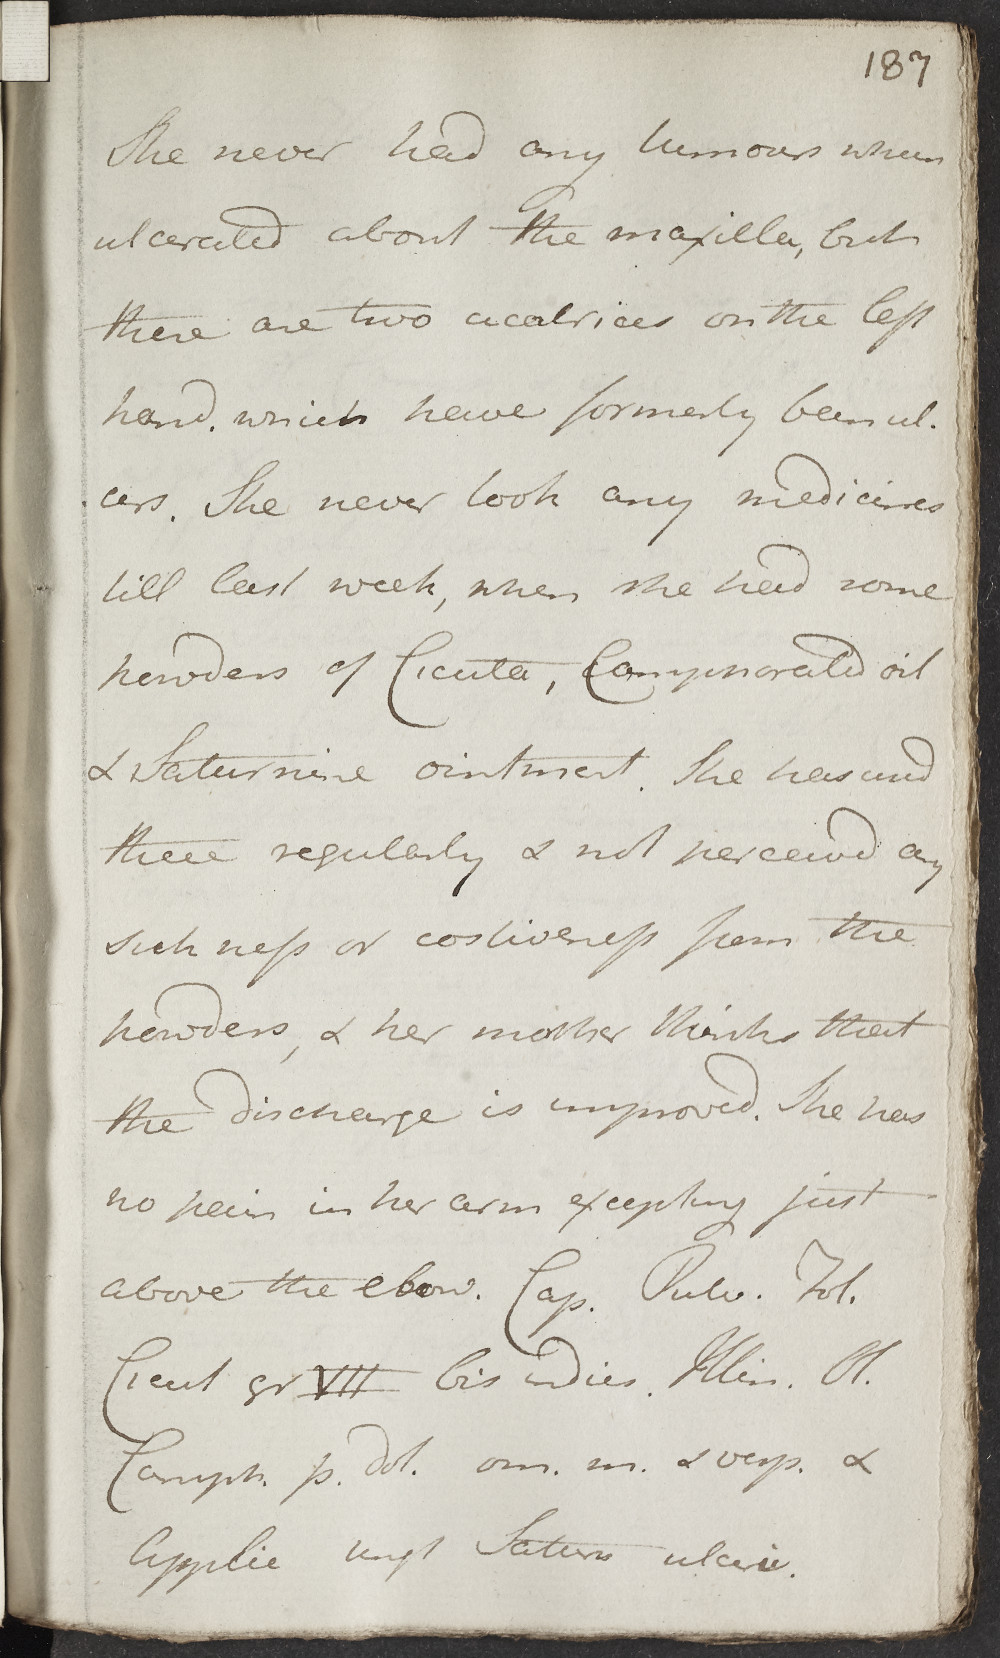 187
She never had any tumours when
ulcerated about the maxilla, but
there are two cicatrices on the left
hand. which have formerly been ul-
cers. She never took any medicines
till last week, when she had some
powders of Cicuta, Camphorated oil
& Saturnine ointment. She has used
these regularly & not perceived any
sickness or costiveness from the
powders, & her mother thinks that
the discharge is improved. She has
no pain in her arm excepting just
above the elbow. Cap. Pulv. Fol.
Cicut gr VII bis indies. Illin. Ol.
Camph. p. dol. om. m. & vesp. &
Applic ungt Saturn ulceri.